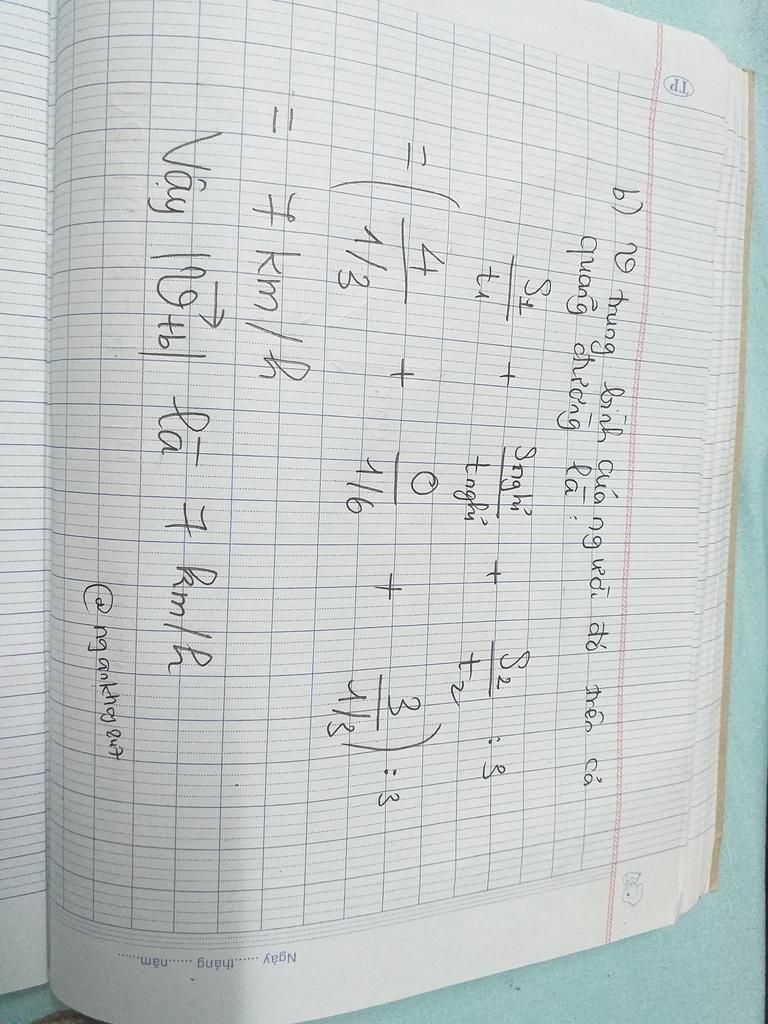 TP
b) v trung bình của người đó trên cả
quãng đường là:
S1/t1 + Snghỉ/tnghỉ + S2/t2 : 3
= (4/1/3 + 0/1/6 + 3/1/3) : 3
= 7 km/h
Vậy |v→tb| là 7 km/h
Ngày ......tháng ......năm......